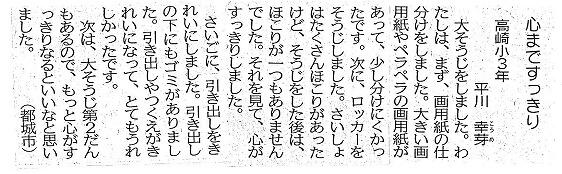 心まですっきり
高崎小3年
平川　幸芽
こうめ
　大そうじをしました。わ
たしは、まず、画用紙の仕
分けをしました。大きい画
用紙やペラペラの画用紙が
あって、少し分けにくかっ
たです。次に、ロッカーを
そうじしました。さいしょ
はたくさんほこりがあった
けど、そうじをした後は、
ほこりが一つもありません
でした。それを見て、心が
すっきりしました。
　さいごに、引き出しをき
れいにしました。引き出し
の下にもゴミがありまし
た。引き出しやつくえがき
れいになって、とてもうれ
しかったです。
　次は、大そうじ第2だん
もあるので、もっと心がす
っきりなるといいなと思い
ました。
（都城市）